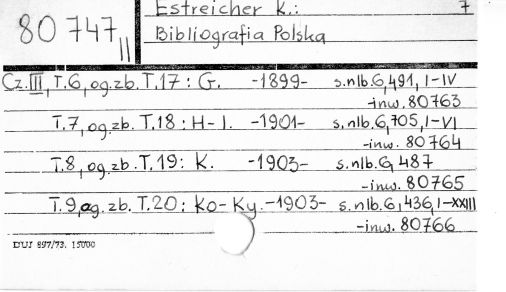 80 747 II
Estreicher K.: 7
Bibliografia Polska
Cz. III, T.6, og. zb. T.17 : G. -1899- s.nlb.6,491, I-IV
-inw. 80763
T.7, og. zb. T.18 : H-I. -1901- s.nlb.6,705, I-VI
-inw. 80764
T.8, og. zb. T.19 : K. -1903- s.nlb.6, 487
-inw. 80765
T.9, og. zb. T.20 : Ko-Ky. -1903- s.nlb.6,436, I-XXIII
-inw. 80766
DUJ 897/73. 15000